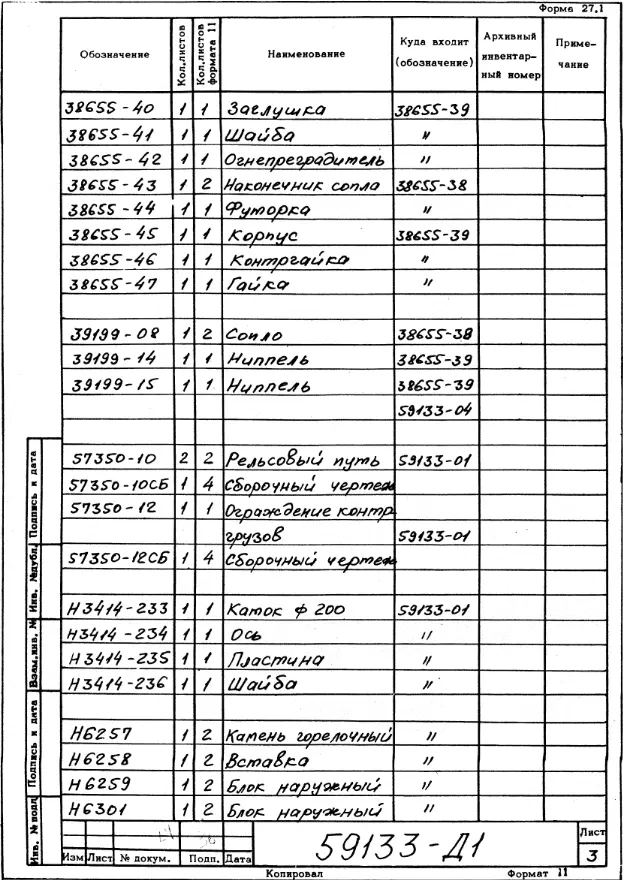 Форма 27.1
Обозначение Кол.листов Кол.листов формата 11 Наименование Куда входит (обозначение) Архивный инвентарный номер Примечание
38655-40 1 1 Заглушка 38655-39
38655-41 1 1 Шайба "
38655-42 1 1 Огнепреградитель "
38655-43 1 2 Наконечник сопла 38655-38
38655-44 1 1 Футорка "
38655-45 1 1 Корпус 38655-39
38655-46 1 1 Контргайка "
38655-47 1 1 Гайка "
39199-08 1 2 Сопло 38655-38
39199-14 1 1 Ниппель 38655-39
39199-15 1 1 Ниппель 38655-39
59133-04
57350-10 2 2 Рельсовый путь 59133-01
57350-10СБ 1 4 Сборочный чертеж
57350-12 1 1 Ограждение контр
грузов 59133-01
57350-12СБ 1 4 Сборочный чертеж
Н3414-233 1 1 Каток ф 200 59133-01
Н3414-234 1 1 Ось "
Н3414-235 1 1 Пластина "
Н3414-236 1 1 Шайба "
Н6257 1 2 Камень горелочный "
Н6258 1 2 Вставка "
Н6259 1 2 Блок наружный "
Н6301 1 2 Блок наружный "
Инв. № подл. Подпись и дата Взам.инв. № Инв. №дубл. Подпись и дата
59133-Д1
Лист
3
Изм Лист № докум. Подп. Дата
Копировал Формат 11